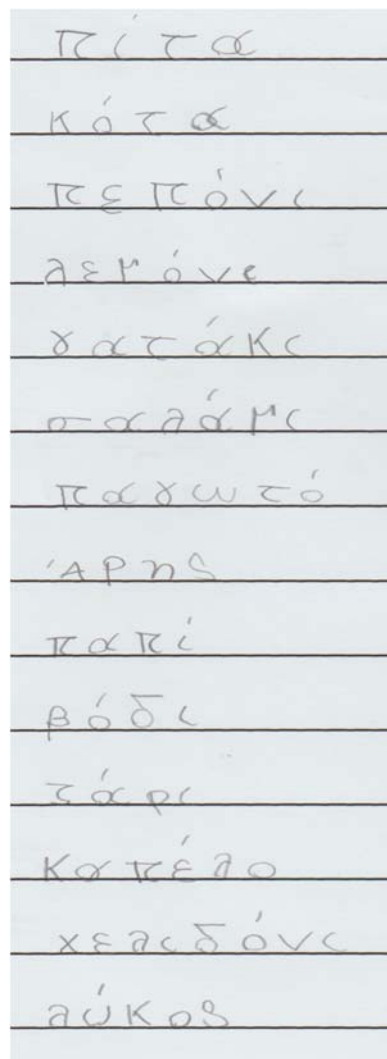 πίτα
κότα
πεπόνι
λεμόνι
γατάκι
σαλάμι
παγωτό
Άρης
παπί
βόδι
τάρι
καπέλο
χελιδόνι
λύκος